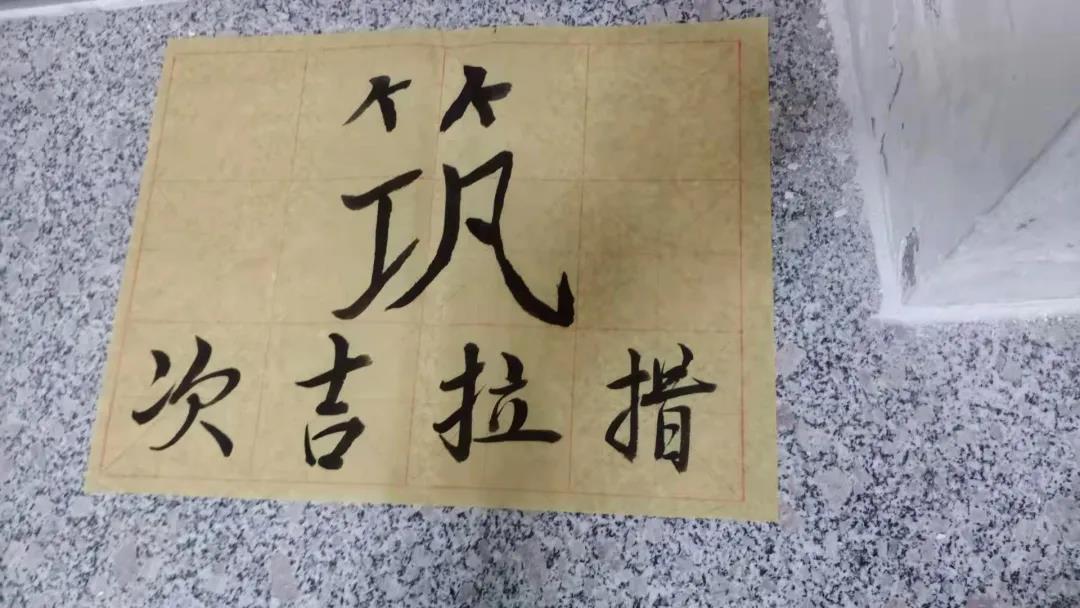 筑
次吉拉措